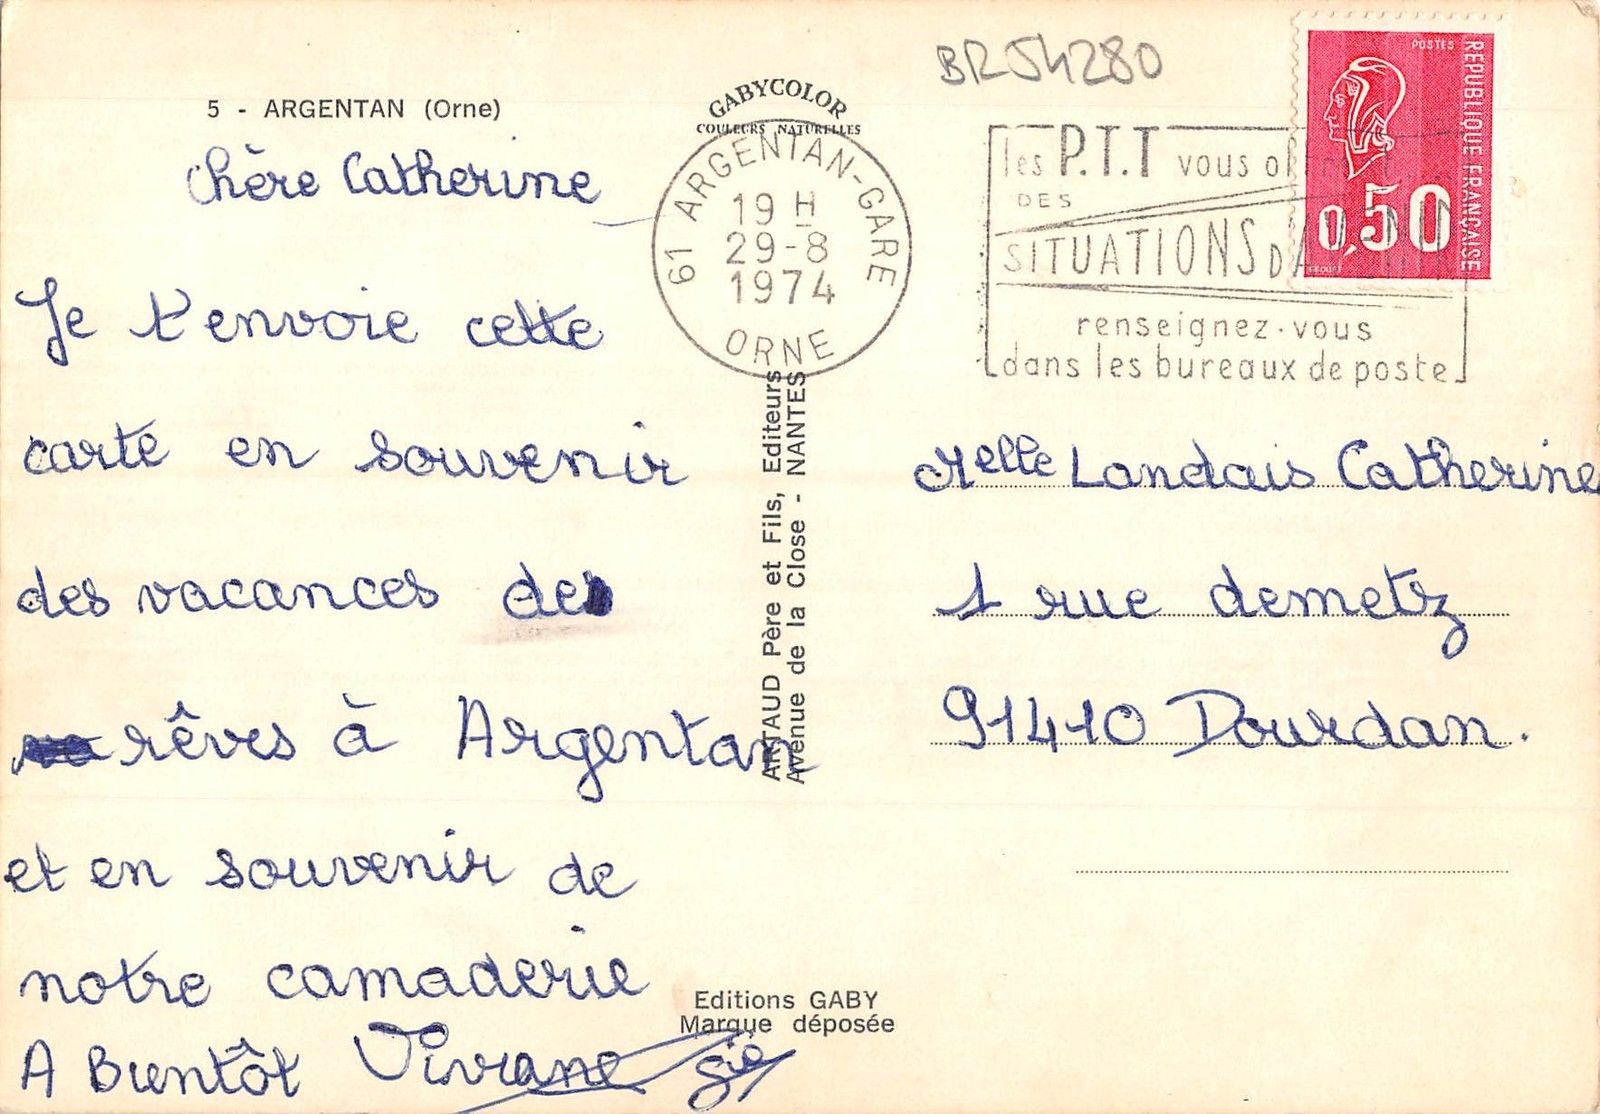 BR54280
GABYCOLOR
COULEURS NATURELLES
5 - ARGENTAN (Orne)
61 ARGENTAN-GARE
19 H
29-8
1974
ORNE
les P.T.T vous
DES
SITUATIONS
renseignez-vous
dans les bureaux de poste
POSTES
REPUBLIQUE FRANÇAISE
0,50
Chère Catherine
Je t'envoie cette
carte en souvenir
des vacances de
rêves à Argentan
et en souvenir de
notre camaderie
A Bientôt Viviane
ARTAUD Père et Fils, Editeurs
Avenue de la Close - NANTES
Melle Landais Catherine
1 rue demetz
91410 Dourdan.
Editions GABY
Marque déposée